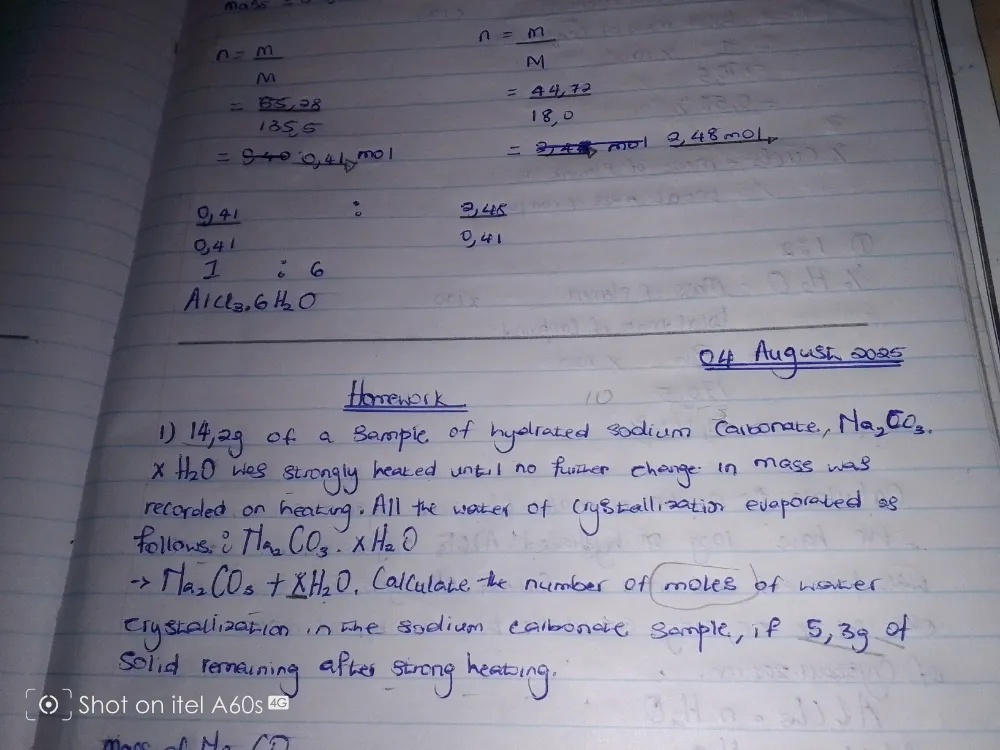 mass
n = m n = m
M M
= 55,28 = 44,72
135,5 18,0
= 0,41 mol = 2,48 mol
0,41 : 2,48
0,41 0,41
1 : 6
AlCl₃.6H₂O
04 August 2025
Homework
1) 14,2g of a sample of hydrated sodium carbonate, Na₂CO₃.
x H₂O was strongly heated until no further change in mass was
recorded on heating. All the water of crystallization evaporated as
follows: Na₂CO₃. xH₂O
→ Na₂CO₃ + XH₂O. Calculate the number of moles of water
crystallization in the sodium carbonate sample, if 5,3g of
Solid remaining after strong heating.
Shot on itel A60s 4G
mass of Na₂CO